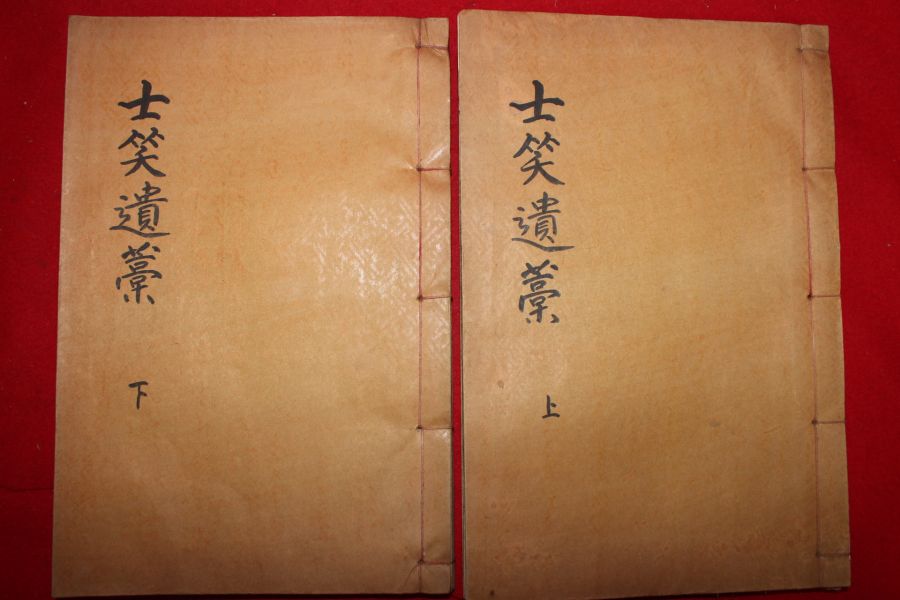 士笑遺藁
上
士笑遺藁
下